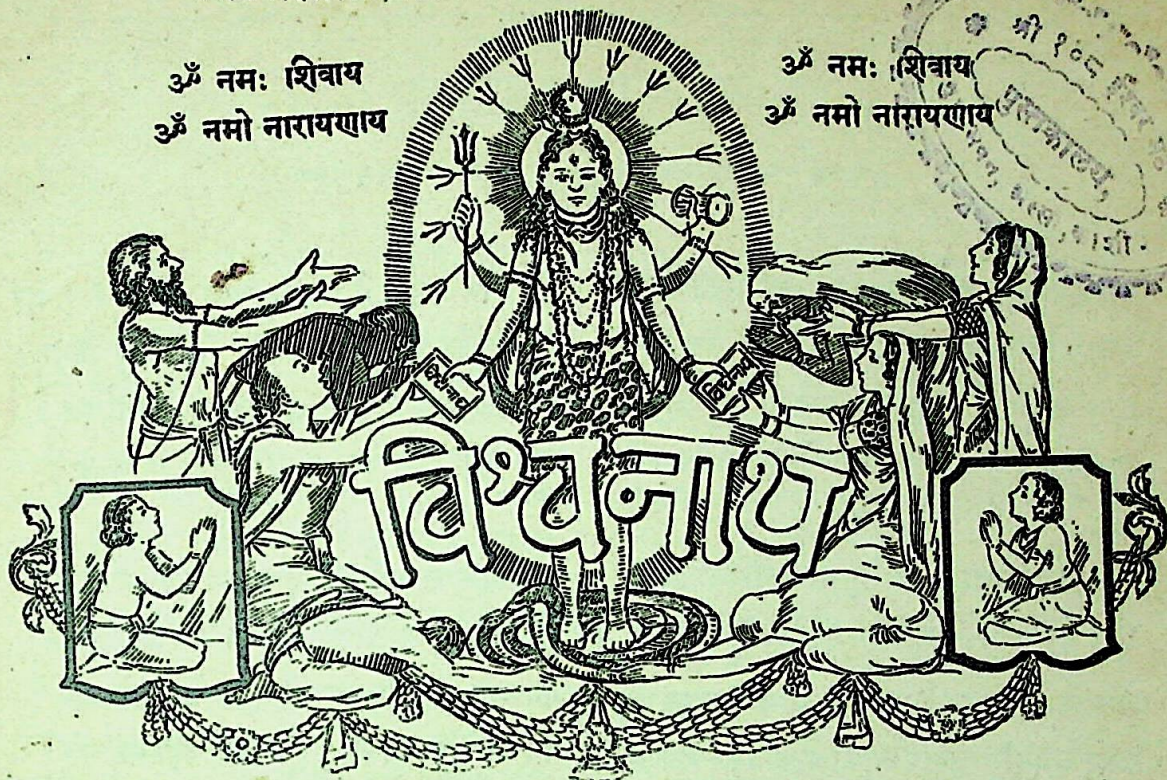 ॐ नमः शिवाय
ॐ नमो नारायणाय
ॐ नमः शिवाय
ॐ नमो नारायणाय
श्री १०८
पुस्तकालय,
विश्वनाथ
विश्वनाथ
विश्वनाथ